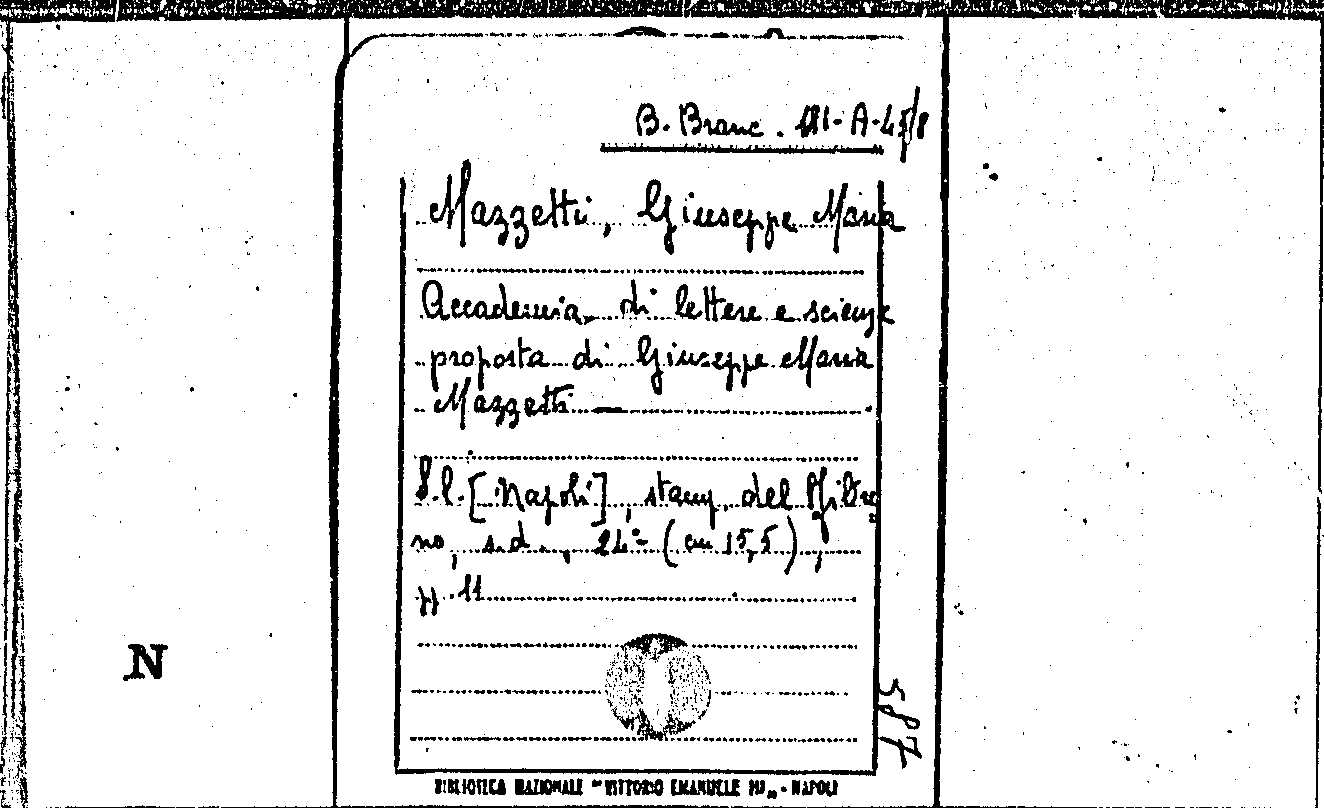 B. Branc. 181-A-45/8
Mazzetti, Giuseppe Maria
Accademia di lettere e scienze
proposta di Giuseppe Maria
Mazzetti —
S.l. [Napoli], stamp. del
no, s.d., 24° (cm 15,5),
pp. 11
N
587
BIBLIOTECA NAZIONALE "VITTORIO EMANUELE III„ - NAPOLI